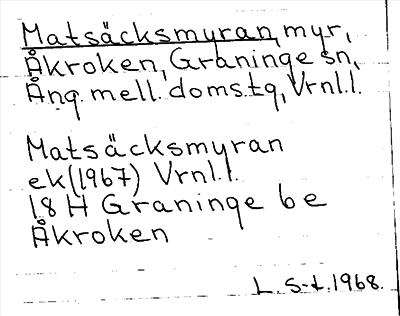 Matsäcksmyran, myr,
Åkroken, Graninge sn,
Ång. mell. domstg, Vrnl.l.
Matsäcksmyran
ek(1967) Vrnl.l.
18 H Graninge 6e
Åkroken
L. S-t. 1968.